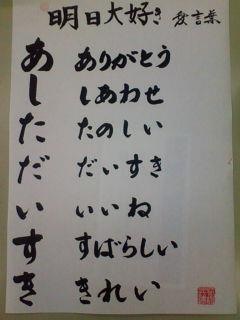 明日大好き 愛言葉
あしただいすき
ありがとう
しあわせ
たのしい
だいすき
いいね
すばらしい
きれい